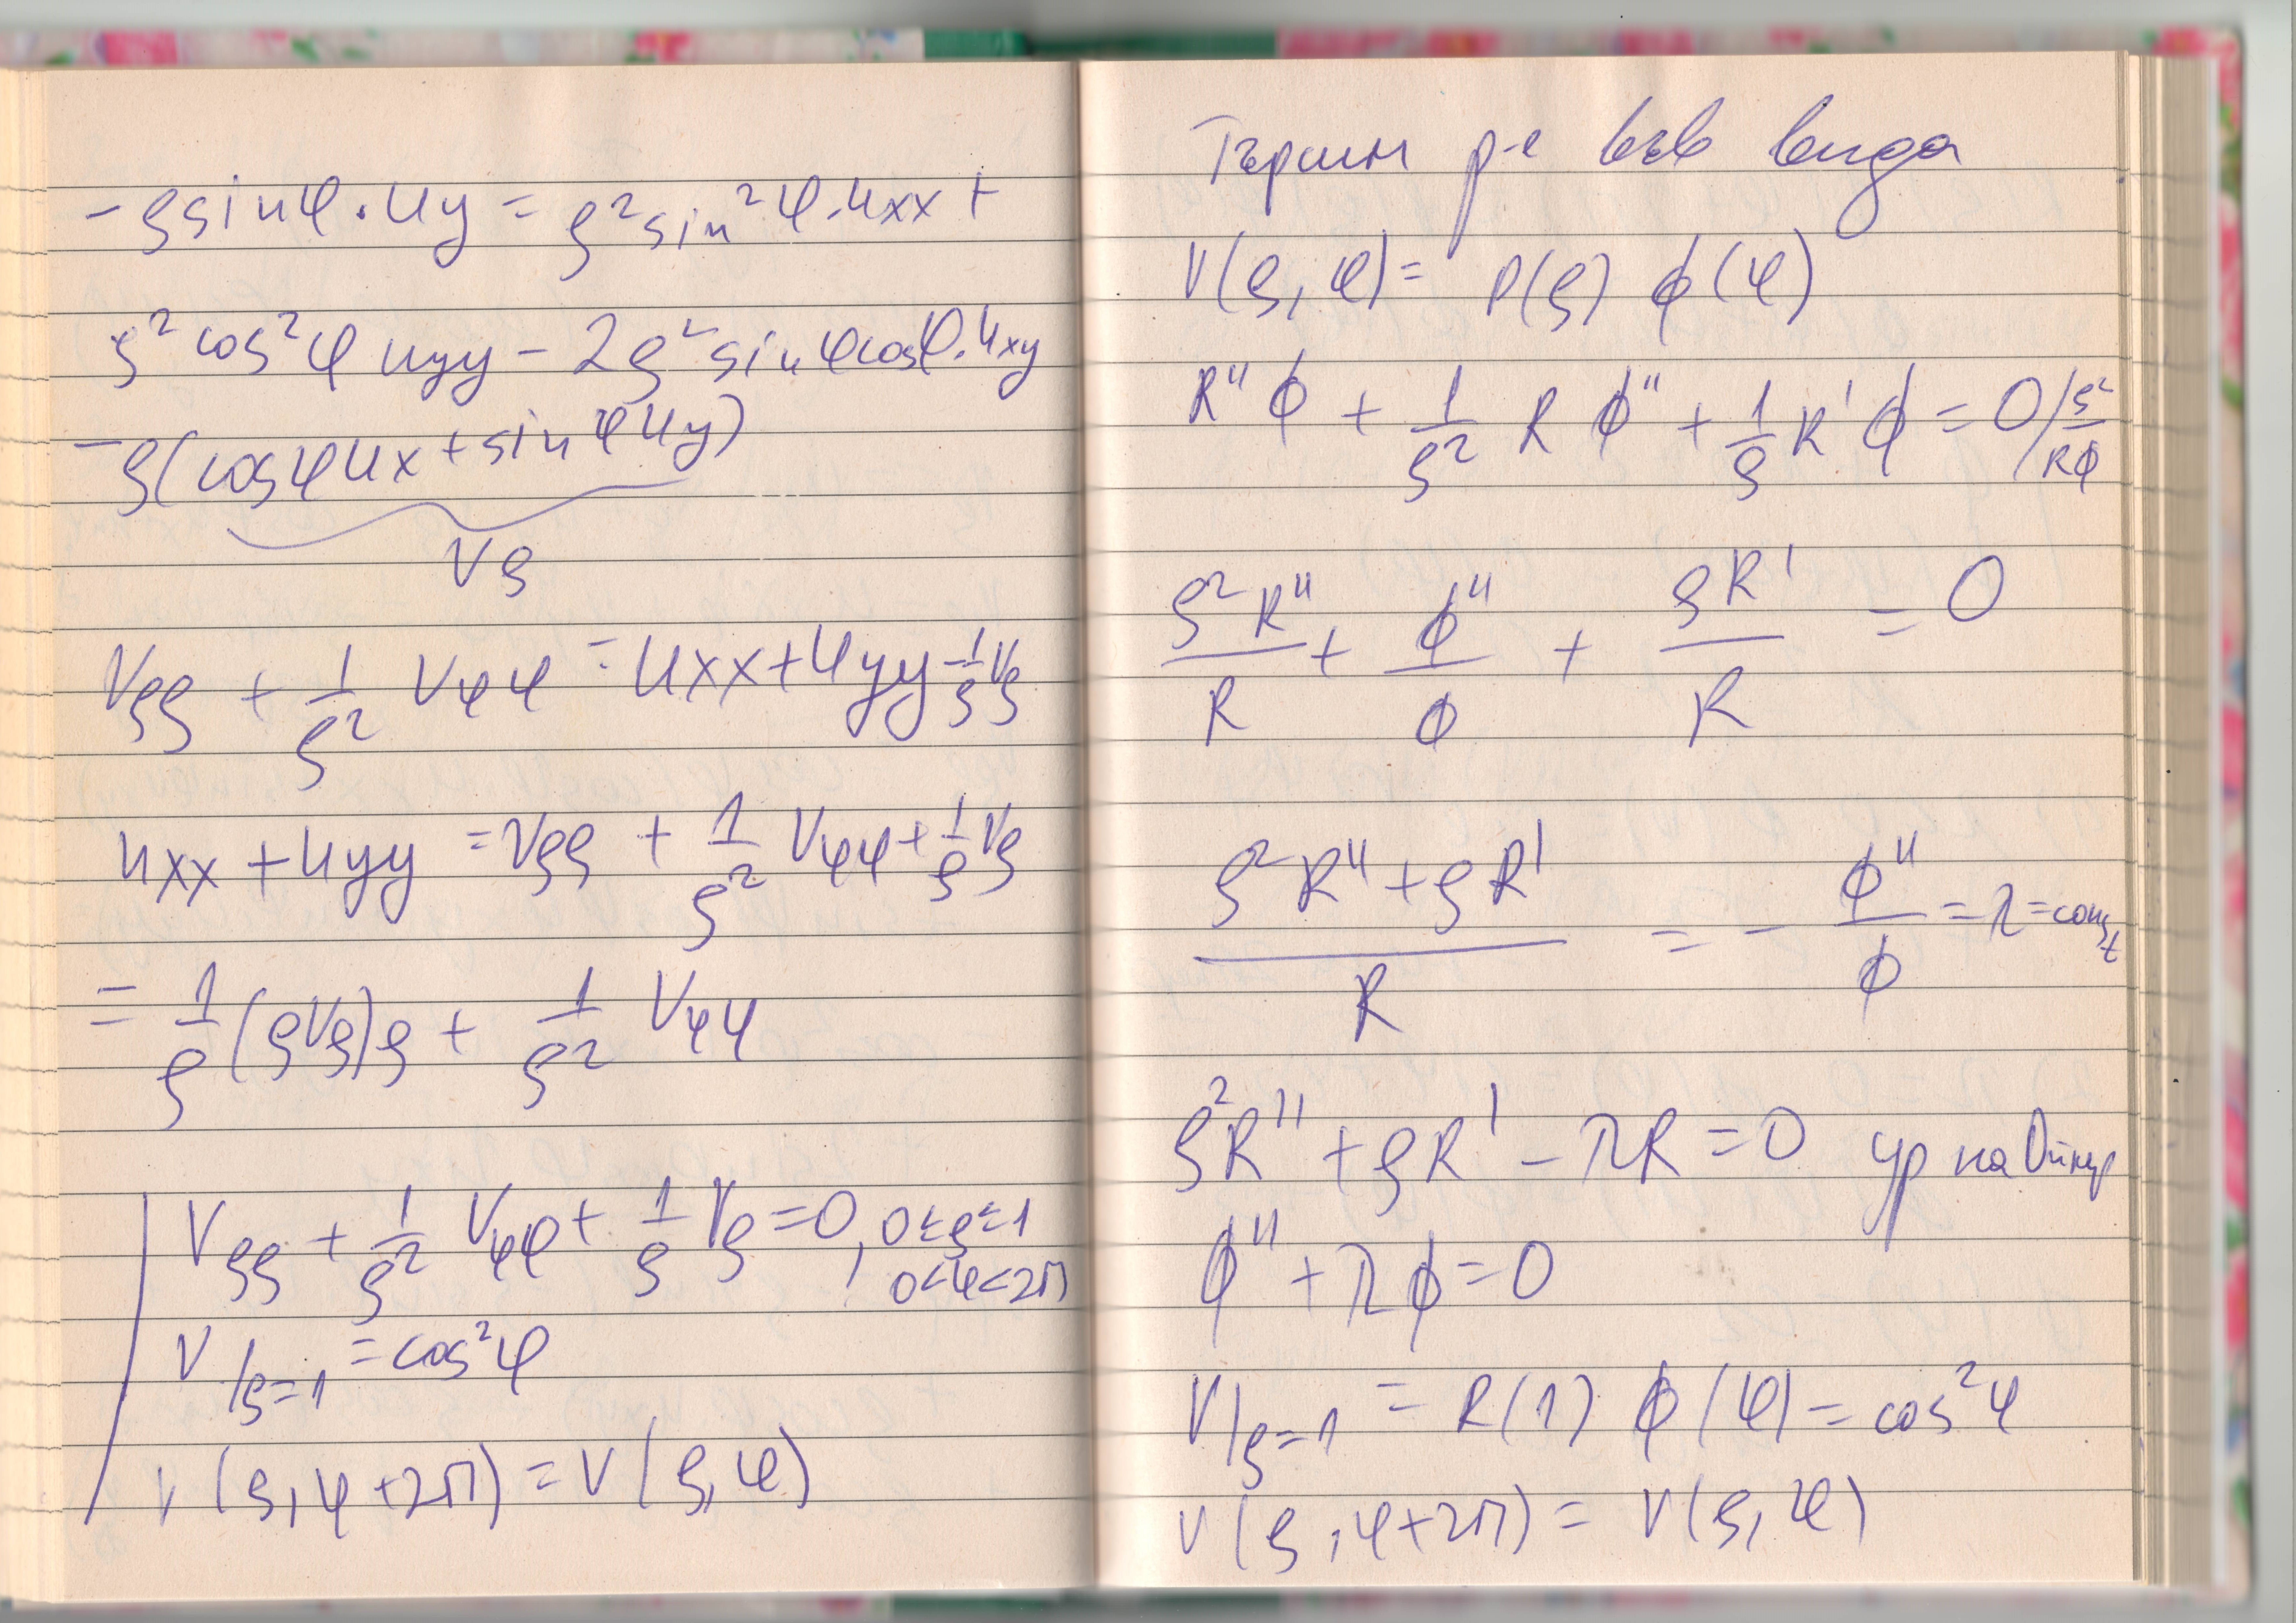 -ρsinφ.uy = ρ²sin²φ.uxx +
ρ²cos²φ uyy - 2ρ²sinφcosφ.uxy
-ρ(cosφux+sinφuy)
Vρ
Vρρ + 1/ρ² Vφφ = uxx+uyy-1/ρ Vρ
uxx+uyy = Vρρ + 1/ρ² Vφφ + 1/ρ Vρ
= 1/ρ (ρVρ)ρ + 1/ρ² Vφφ
Vρρ + 1/ρ² Vφφ + 1/ρ Vρ = 0, 0≤ρ≤1
0<φ<2π
V/ρ=1 = cos²φ
V(ρ,φ+2π) = V(ρ,φ)
Търсим р-е във вида
V(ρ,φ) = R(ρ) ϕ(φ)
R"ϕ + 1/ρ² R ϕ" + 1/ρ R'ϕ = 0 / ρ²/Rϕ
ρ²R"/R + ϕ"/ϕ + ρR'/R = 0
(ρ²R"+ρR')/R = - ϕ"/ϕ = λ = const
ρ²R" + ρR' - λR = 0 ур на Ойлер
ϕ" + λϕ = 0
V/ρ=1 = R(1) ϕ(φ) = cos²φ
V(ρ,φ+2π) = V(ρ,φ)